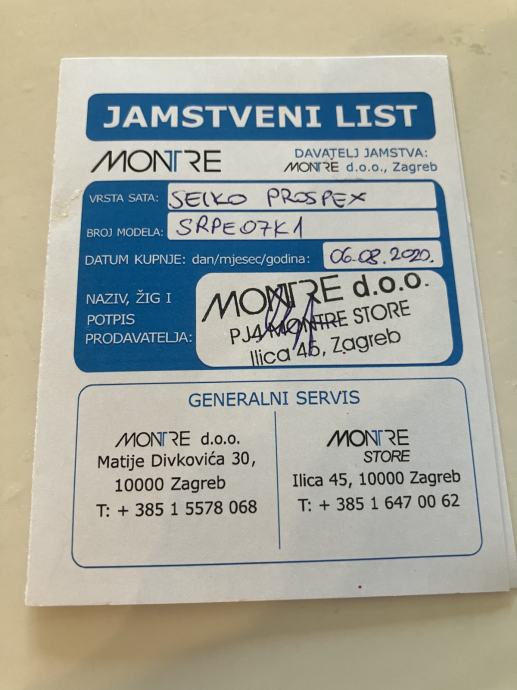 JAMSTVENI LIST
MONTRE
DAVATELJ JAMSTVA:
MONTRE d.o.o., Zagreb
VRSTA SATA: SEIKO PROSPEX
BROJ MODELA: SRPE07K1
DATUM KUPNJE: dan/mjesec/godina: 06.08.2020.
NAZIV, ŽIG I
POTPIS
PRODAVATELJA:
MONTRE d.o.o.
PJ4 MONTRE STORE
Ilica 45, Zagreb
GENERALNI SERVIS
MONTRE d.o.o.
Matije Divkovića 30,
10000 Zagreb
T: + 385 1 5578 068
MONTRE
STORE
Ilica 45, 10000 Zagreb
T: + 385 1 647 00 62